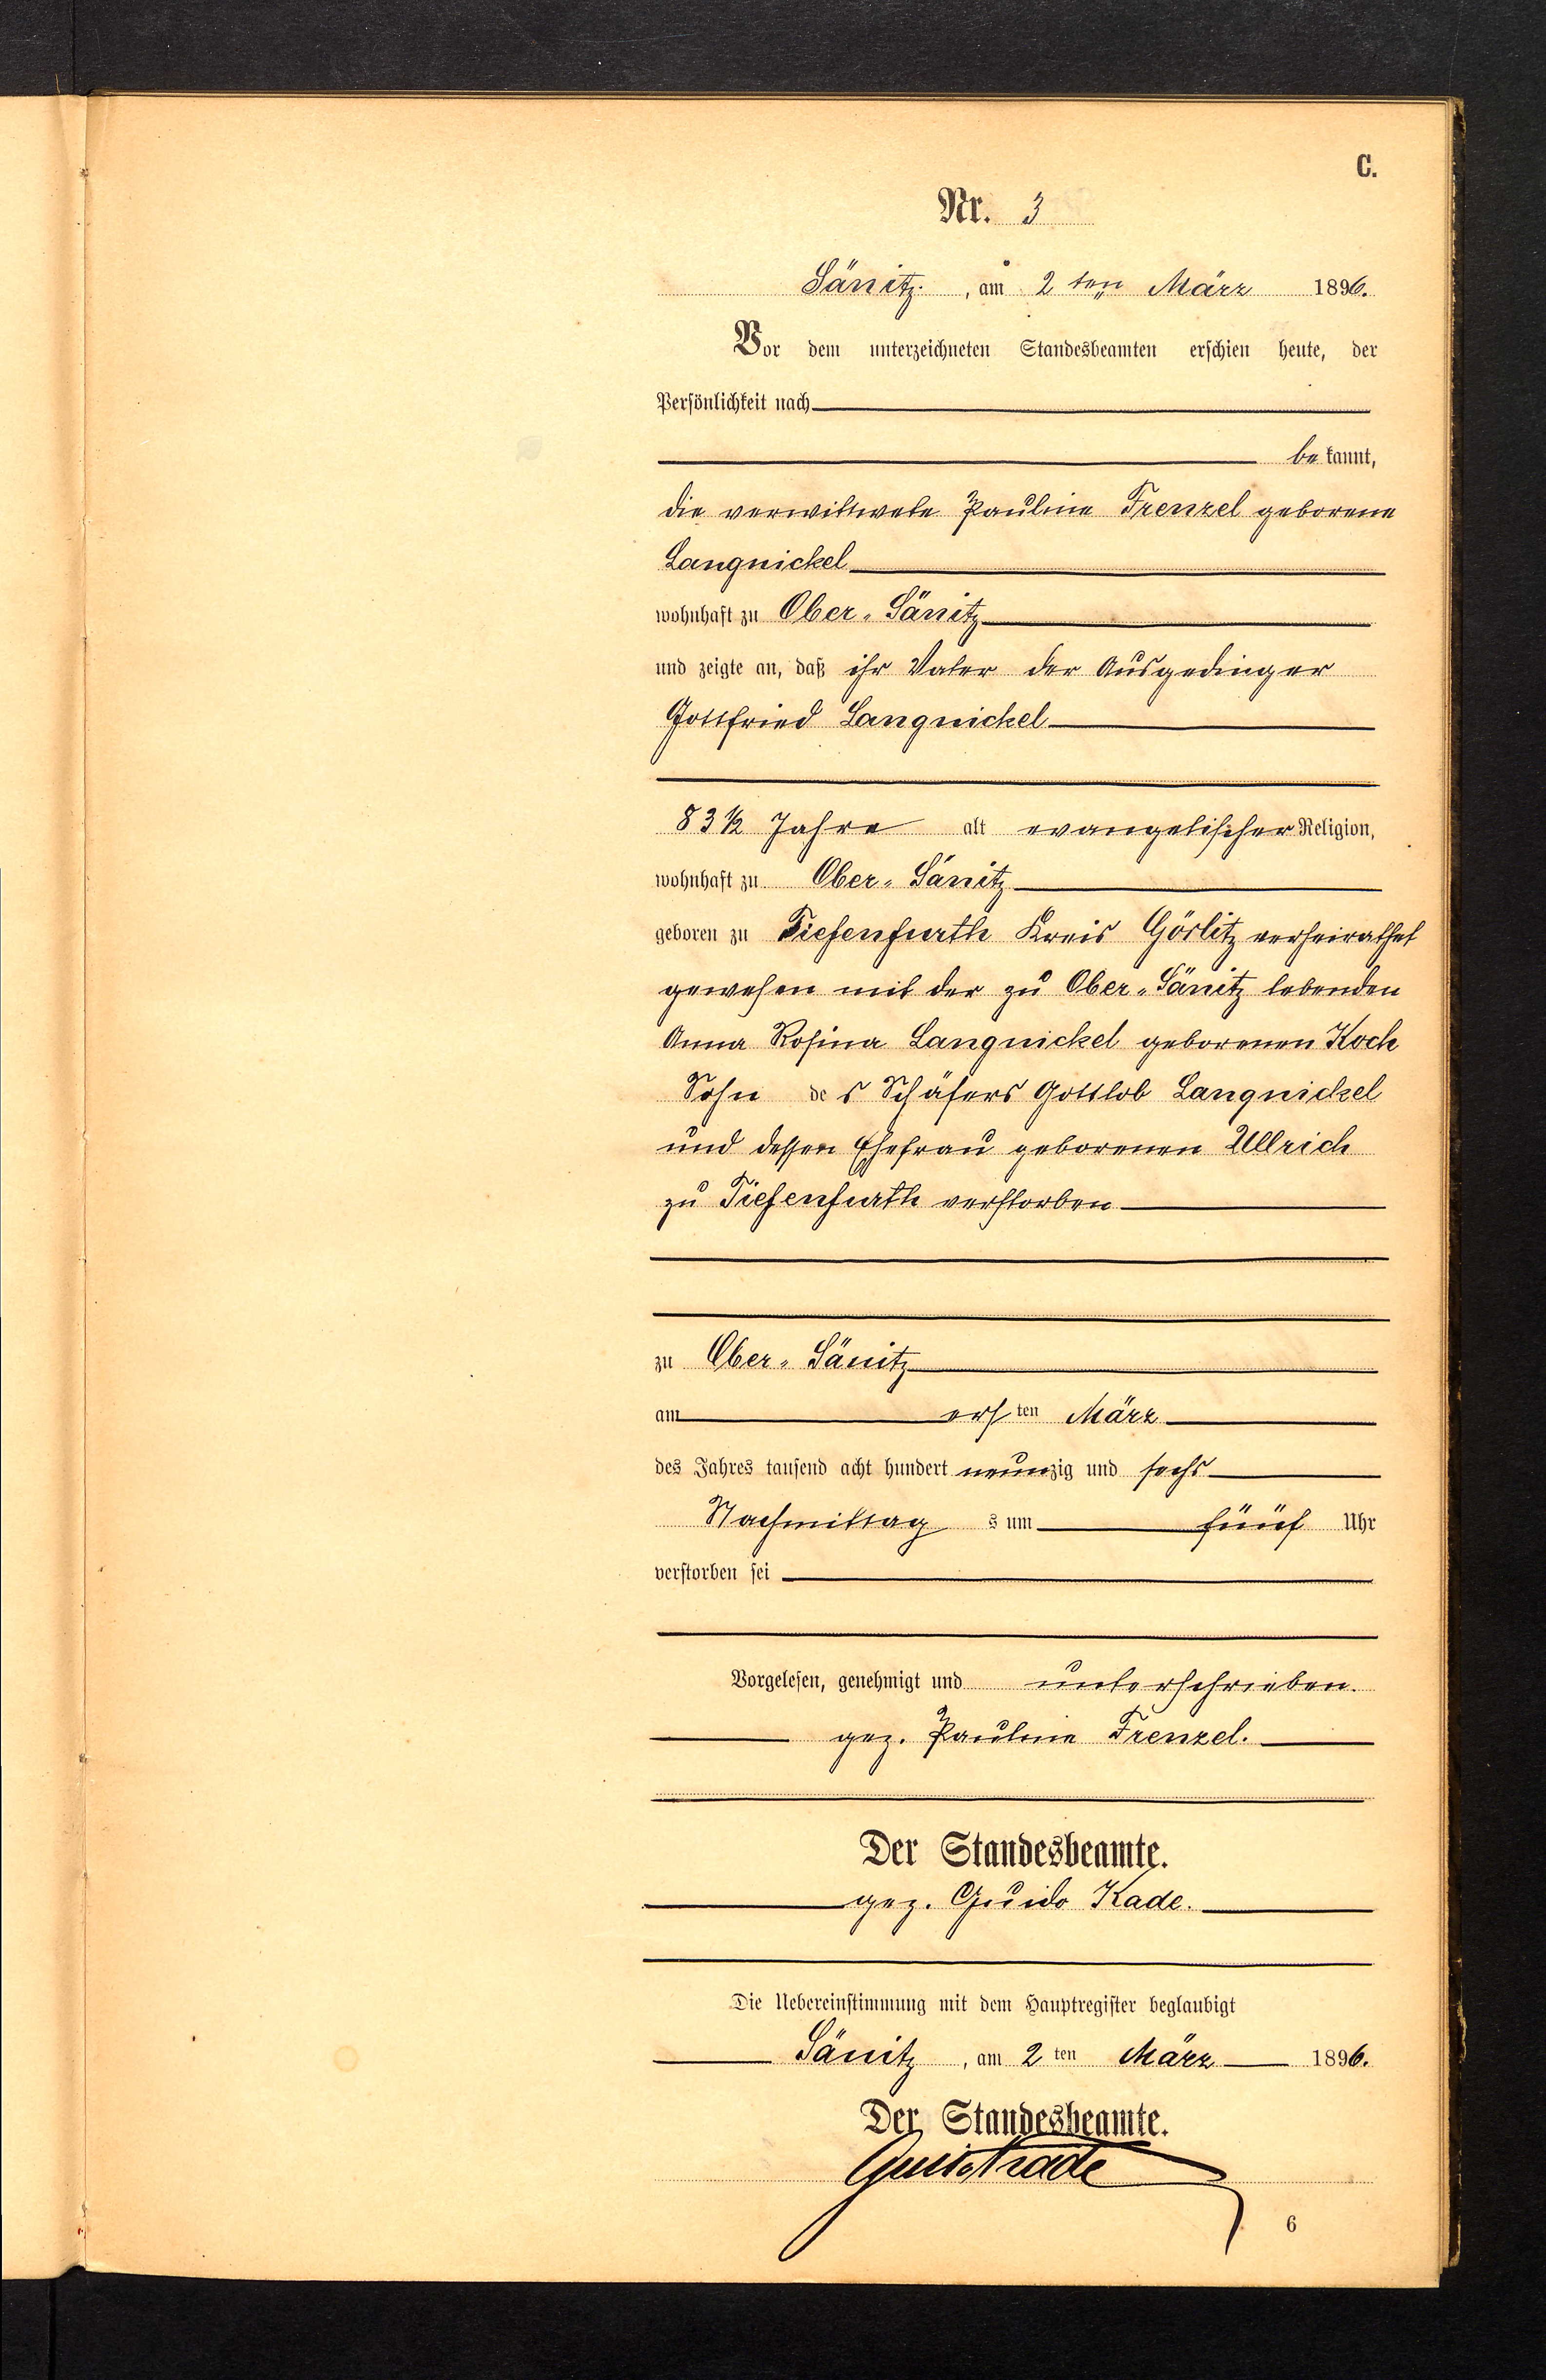 C.
Nr. 3
Sänitz, am 2ten März 1896.
Vor dem unterzeichneten Standesbeamten erschien heute, der
Persönlichkeit nach
bekannt,
die verwittwete Pauline Frenzel geborene
Langnickel
wohnhaft zu Ober-Sänitz
und zeigte an, daß ihr Vater der Ausgedinger
Gottfried Langnickel
83 1/2 Jahre alt evangelischer Religion,
wohnhaft zu Ober-Sänitz
geboren zu Tiefenfurth Kreis Görlitz verheirathet
gewesen mit der zu Ober-Sänitz lebenden
Anna Rosina Langnickel geborenen Koch
Sohn des Schäfers Gottlob Langnickel
und dessen Ehefrau geborenen Ullrich
zu Tiefenfurth verstorben
zu Ober-Sänitz
am ersten März
des Jahres tausend acht hundert neunzig und sechs
Nachmittags um fünf Uhr
verstorben sei
Vorgelesen, genehmigt und unterschrieben.
gez. Pauline Frenzel.
Der Standesbeamte.
gez. Guido Kade.
Die Uebereinstimmung mit dem Hauptregister beglaubigt
Sänitz, am 2ten März 1896.
Der Standesbeamte.
Guido Kade
6